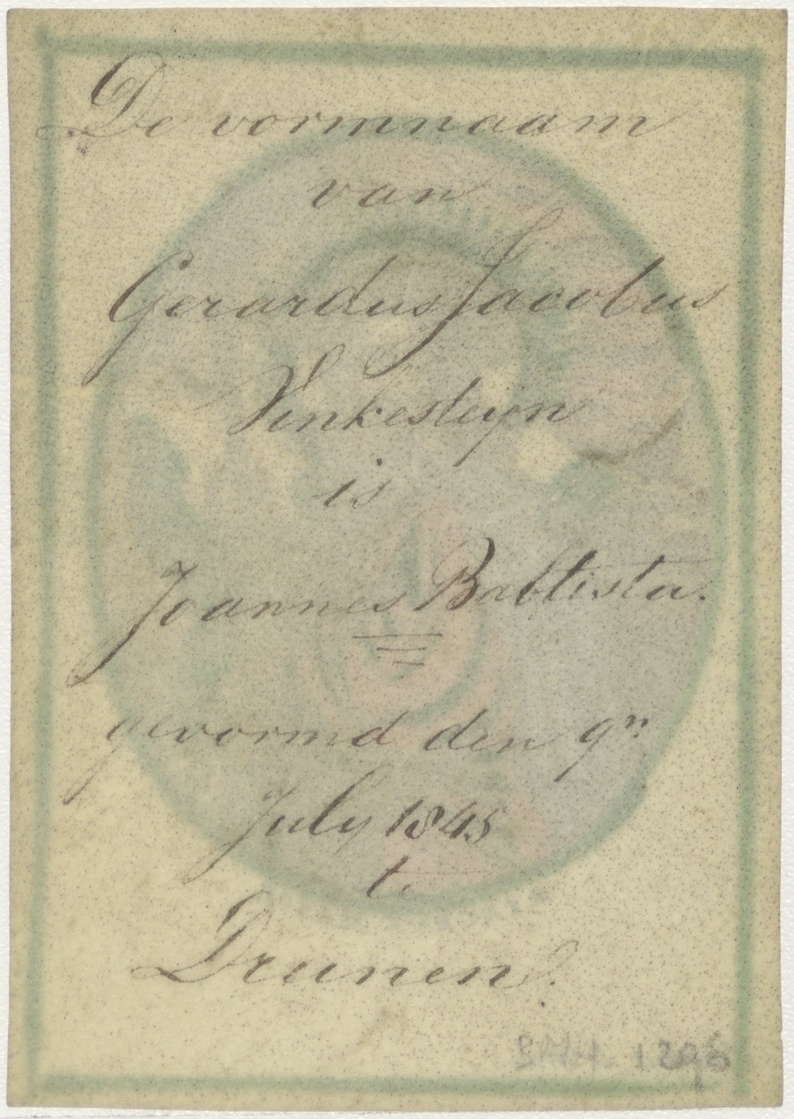 De vormnaam
van
Gerardus Jacobus
Vinkesteyn
is
Joannes Babtista.
gevormd den 9n
July 1845
te
Drunen.